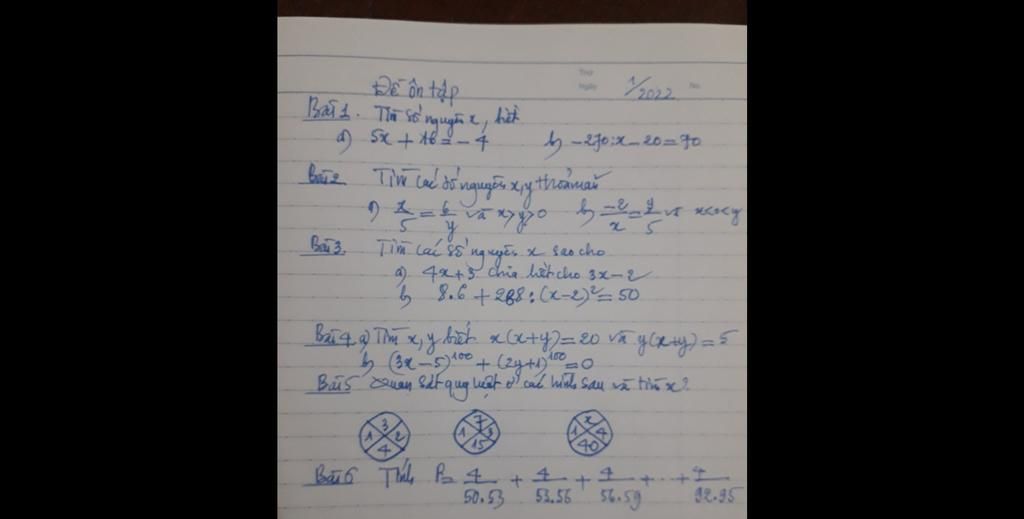 Thứ
Ngày
No.
Đề ôn tập 1/2022
Bài 1. Tìm số nguyên x, biết
a) 5x + 16 = -4 b) -270:x - 20 = 70
Bài 2 Tìm các số nguyên x, y thoả mãn
a) x/5 = 6/y và x > y > 0 b) -2/x = y/5 và x<0<y
Bài 3. Tìm các số nguyên x sao cho
a) 4x+3 chia hết cho 3x-2
b) 8.6 + 288:(x-2)² = 50
Bài 4 a) Tìm x, y biết x(x+y) = 20 và y(x+y) = 5
b) (3x-5)¹⁰⁰ + (2y+1)¹⁰⁰ = 0
Bài 5 Quan sát quy luật ở các hình sau và tìm x?
3 1 2 4
7 1 3 15
x 1 4 40
Bài 6 Tính P = 4/50.53 + 4/53.56 + 4/56.59 + ... + 4/92.95